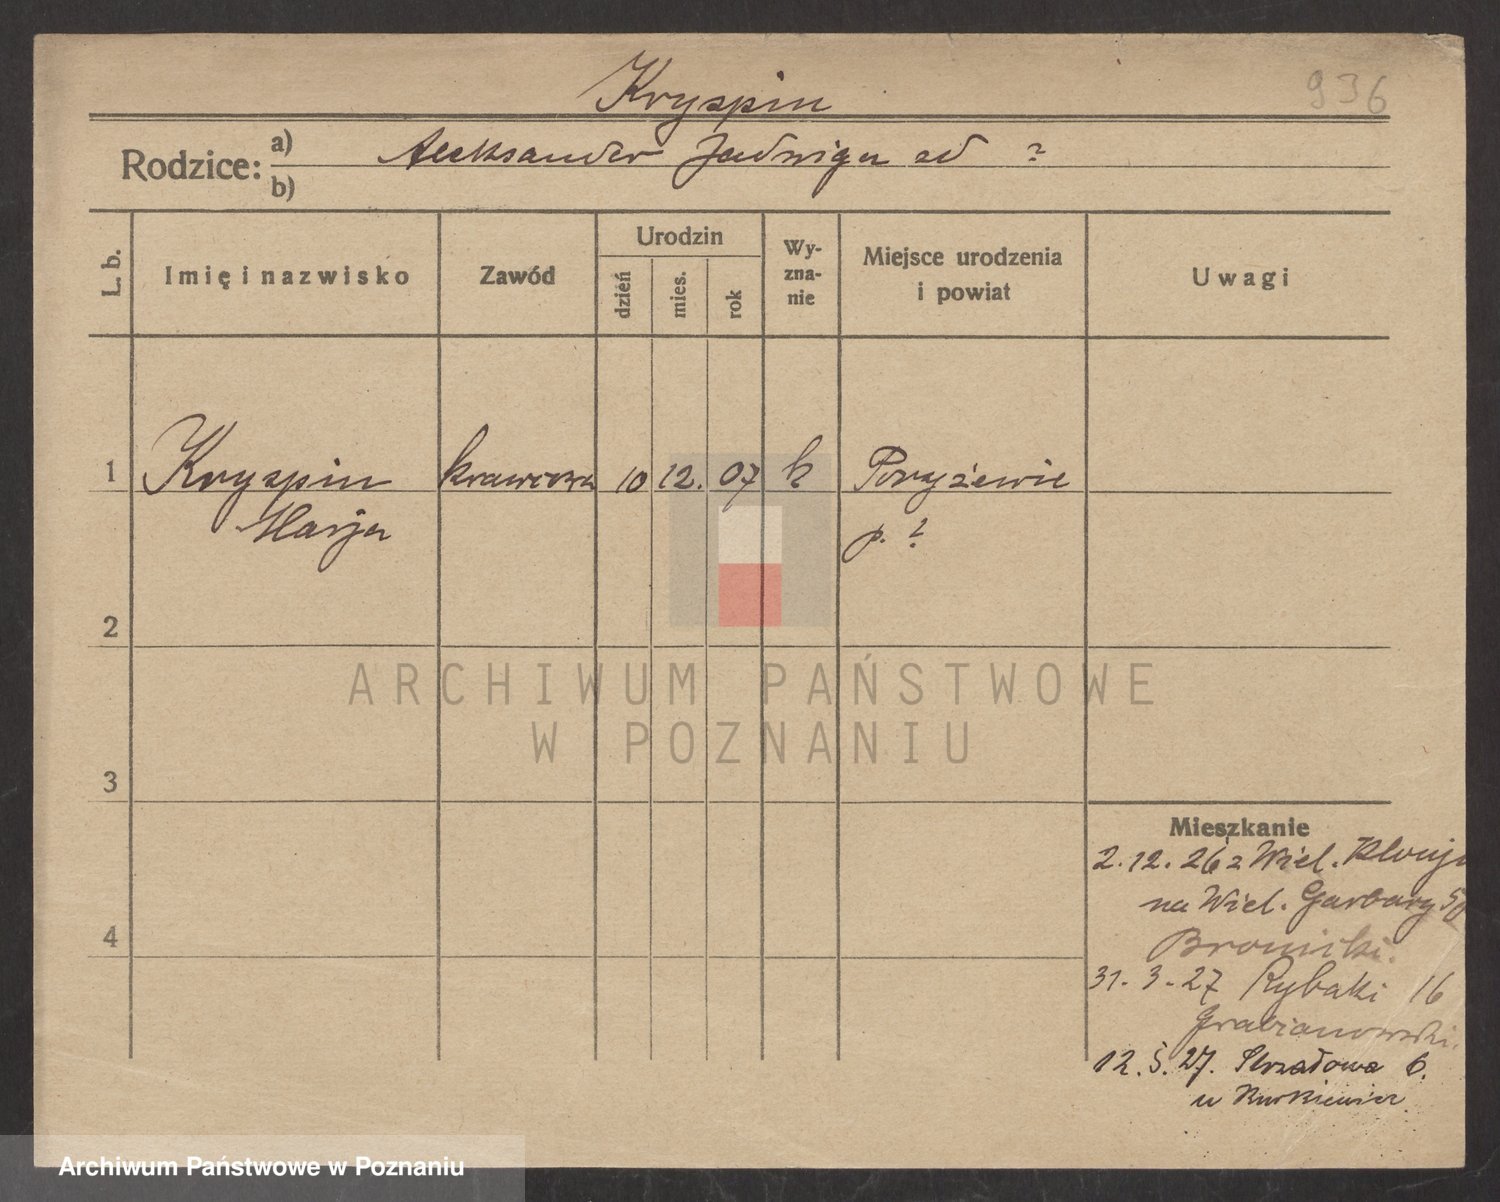 Kryspin
936
Rodzice: a) Aleksander Jadwiga zd ?
b)
L. b.
Imię i nazwisko
Zawód
Urodzin
dzień
mies.
rok
Wy-
zna-
nie
Miejsce urodzenia
i powiat
Uwagi
1 Kryspin krawcowa 10 12. 07 k
Marja
p. ?
2
3
4
Mieszkanie
2.12.26 z Wiel.
na Wiel. Garbary 50
Bronicki.
31.3.27 Rybaki 16
Grabianowski.
12.5.27. Strzałowa 6.
u Kurkiewicz
ARCHIWUM PAŃSTWOWE
W POZNANIU
Archiwum Państwowe w Poznaniu